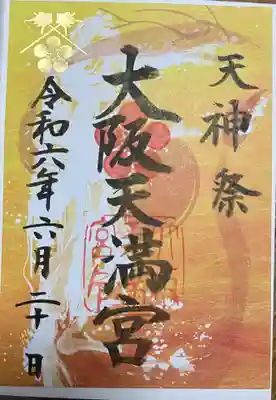 天神祭
大阪天満宮
令和六年六月二十日